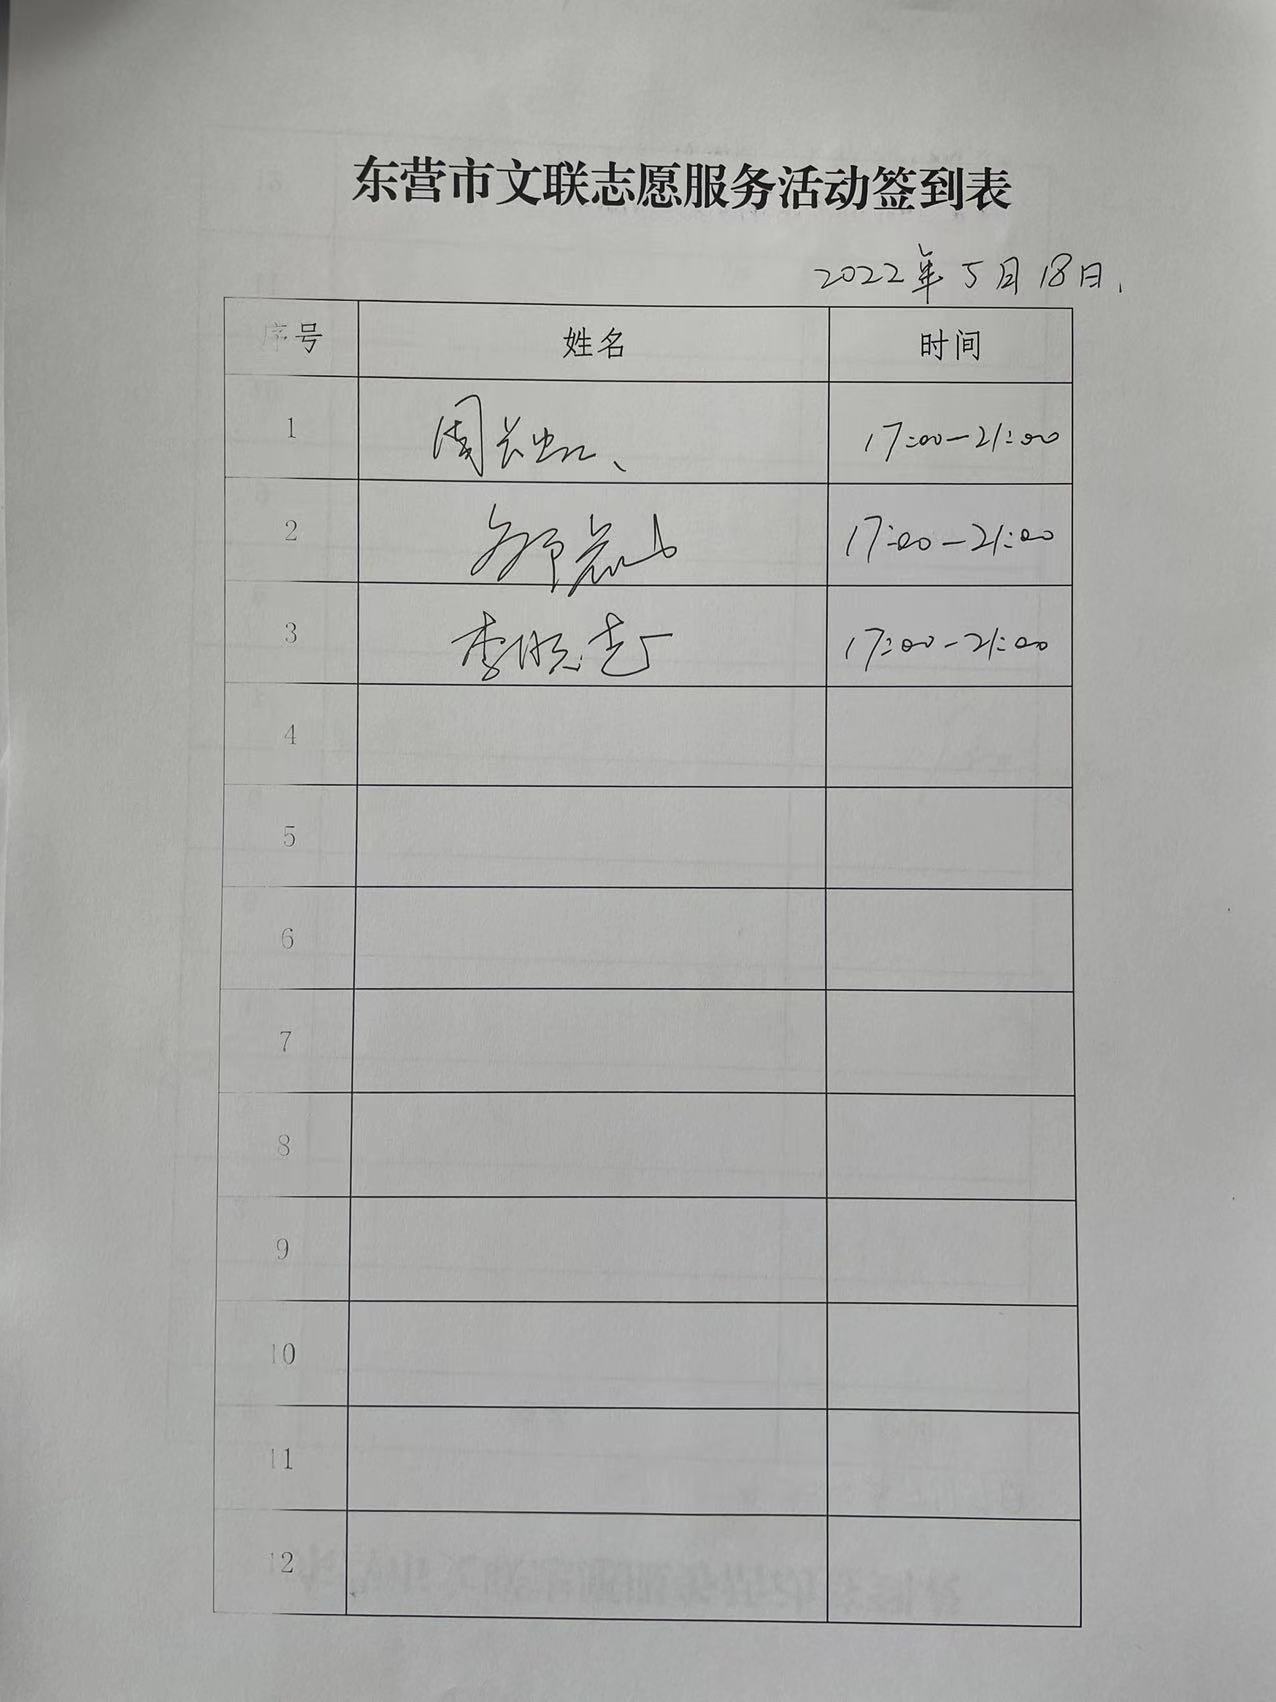 东营市文联志愿服务活动签到表
2022年5月18日
序号 姓名 时间
1 周长虹 17:00-21:00
2 17:00-21:00
3 李晓 17:00-21:00
4
5
6
7
8
9
10
11
12